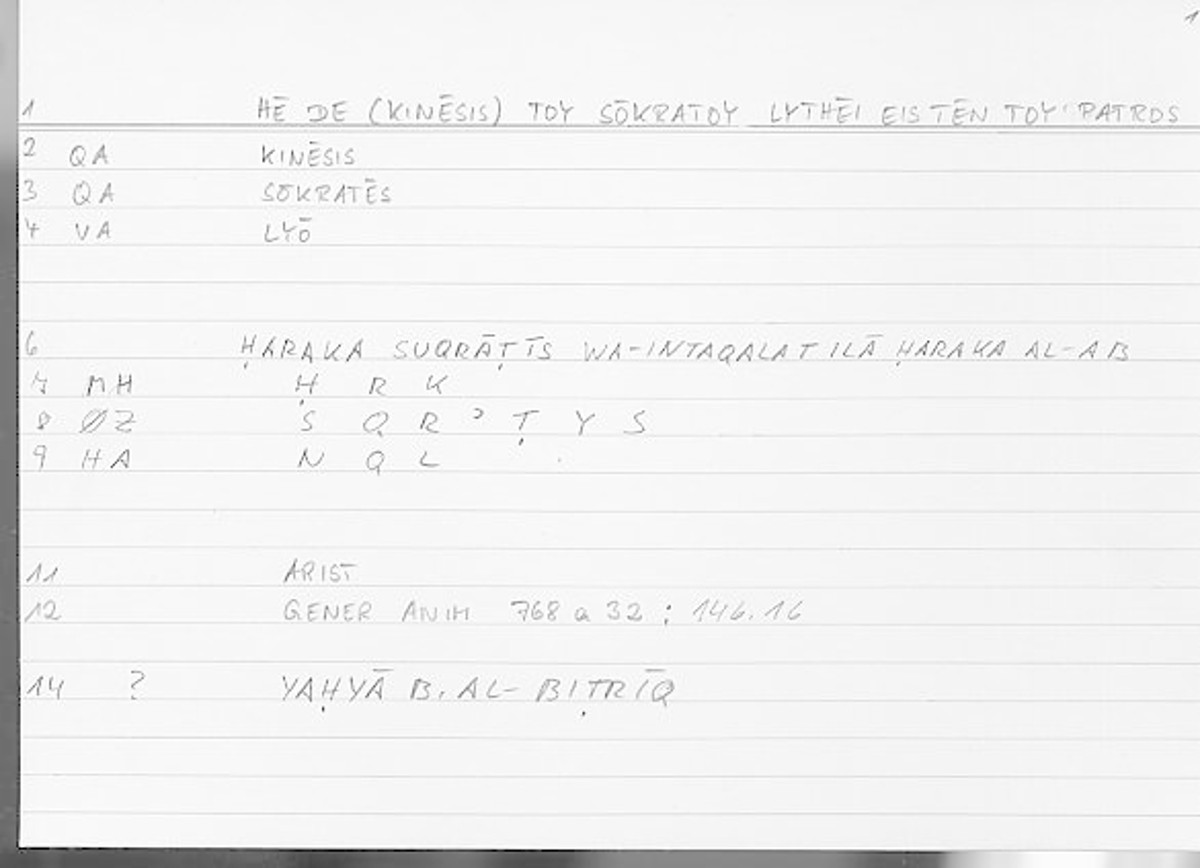 1
1 HĒ DE (KINĒSIS) TOY SŌKRATOY LYTHĒI EIS TĒN TOY PATROS
2 QA KINĒSIS
3 QA SŌKRATĒS
4 VA LYŌ
6 ḤARAKA SUQRĀṬĪS WA-INTAQALAT ILĀ ḤARAKA AL-AB
7 MH Ḥ R K
8 ØZ S Q R ʾ Ṭ Y S
9 HA N Q L
11 ARIST
12 GENER ANIM 768 a 32 ; 146.16
14 ? YAḤYĀ B. AL-BIṬRĪQ